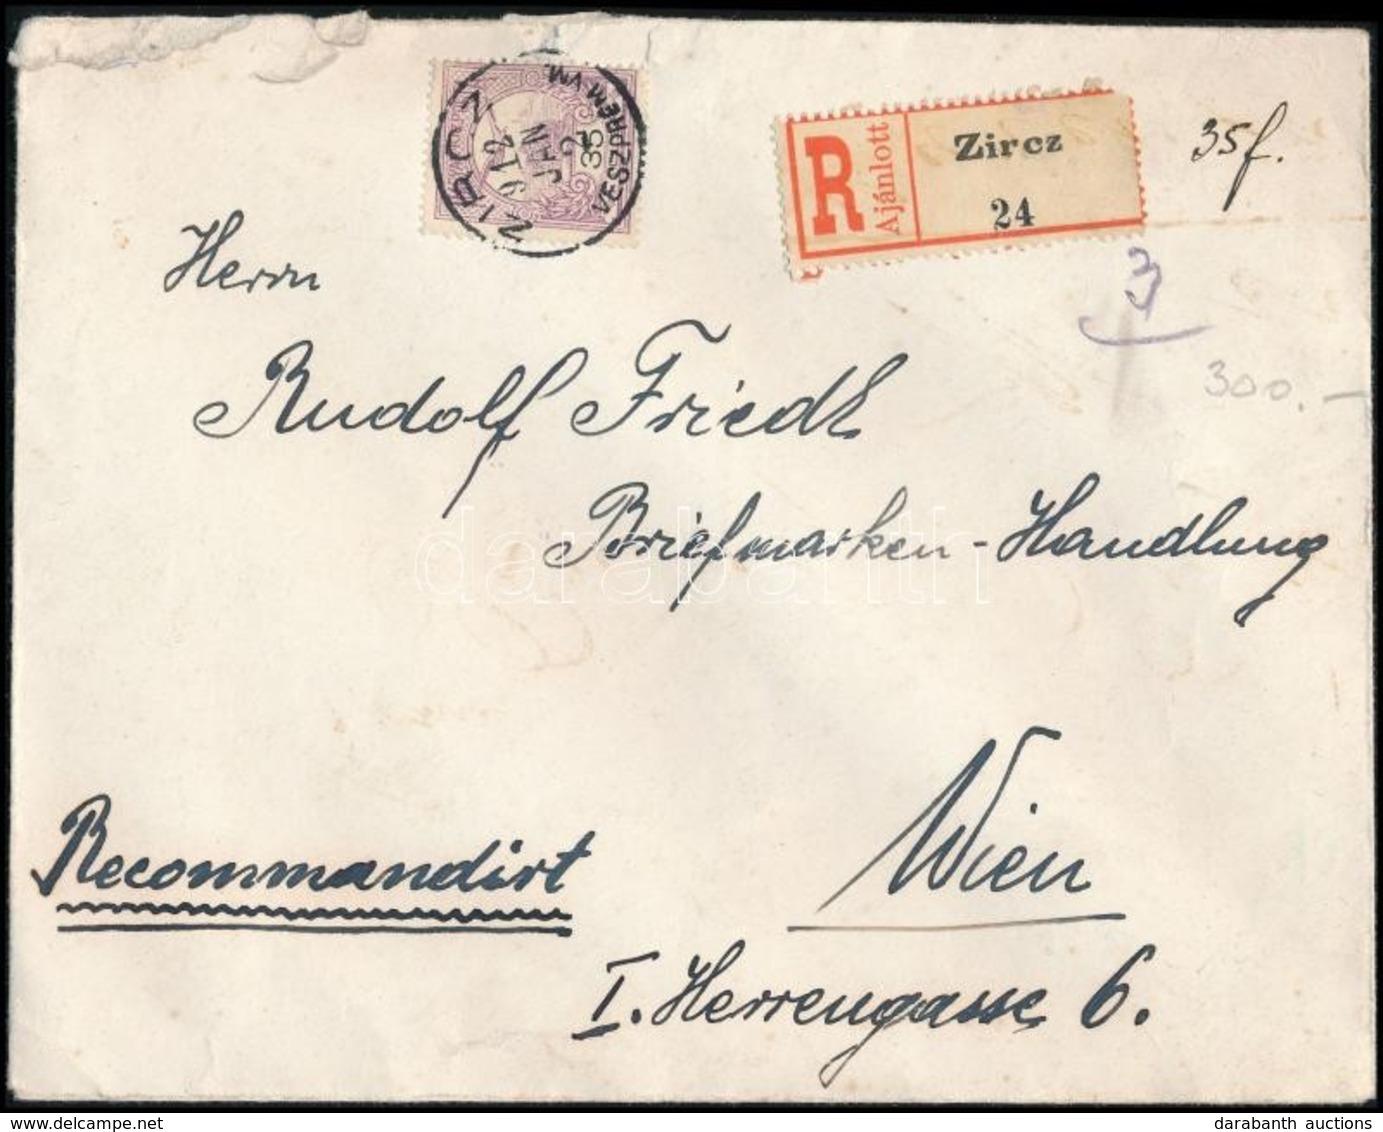 ZIRCZ
912
JAN
2
35
VESZPRÉM VM.
R
Ajánlott
Zircz
24
35f.
Herrn
3
300.—
Rudolf Friedl
Briefmarken-Handlung
darabanth
Wien
Recommandirt
I. Herrengasse 6.
darabanth auctions